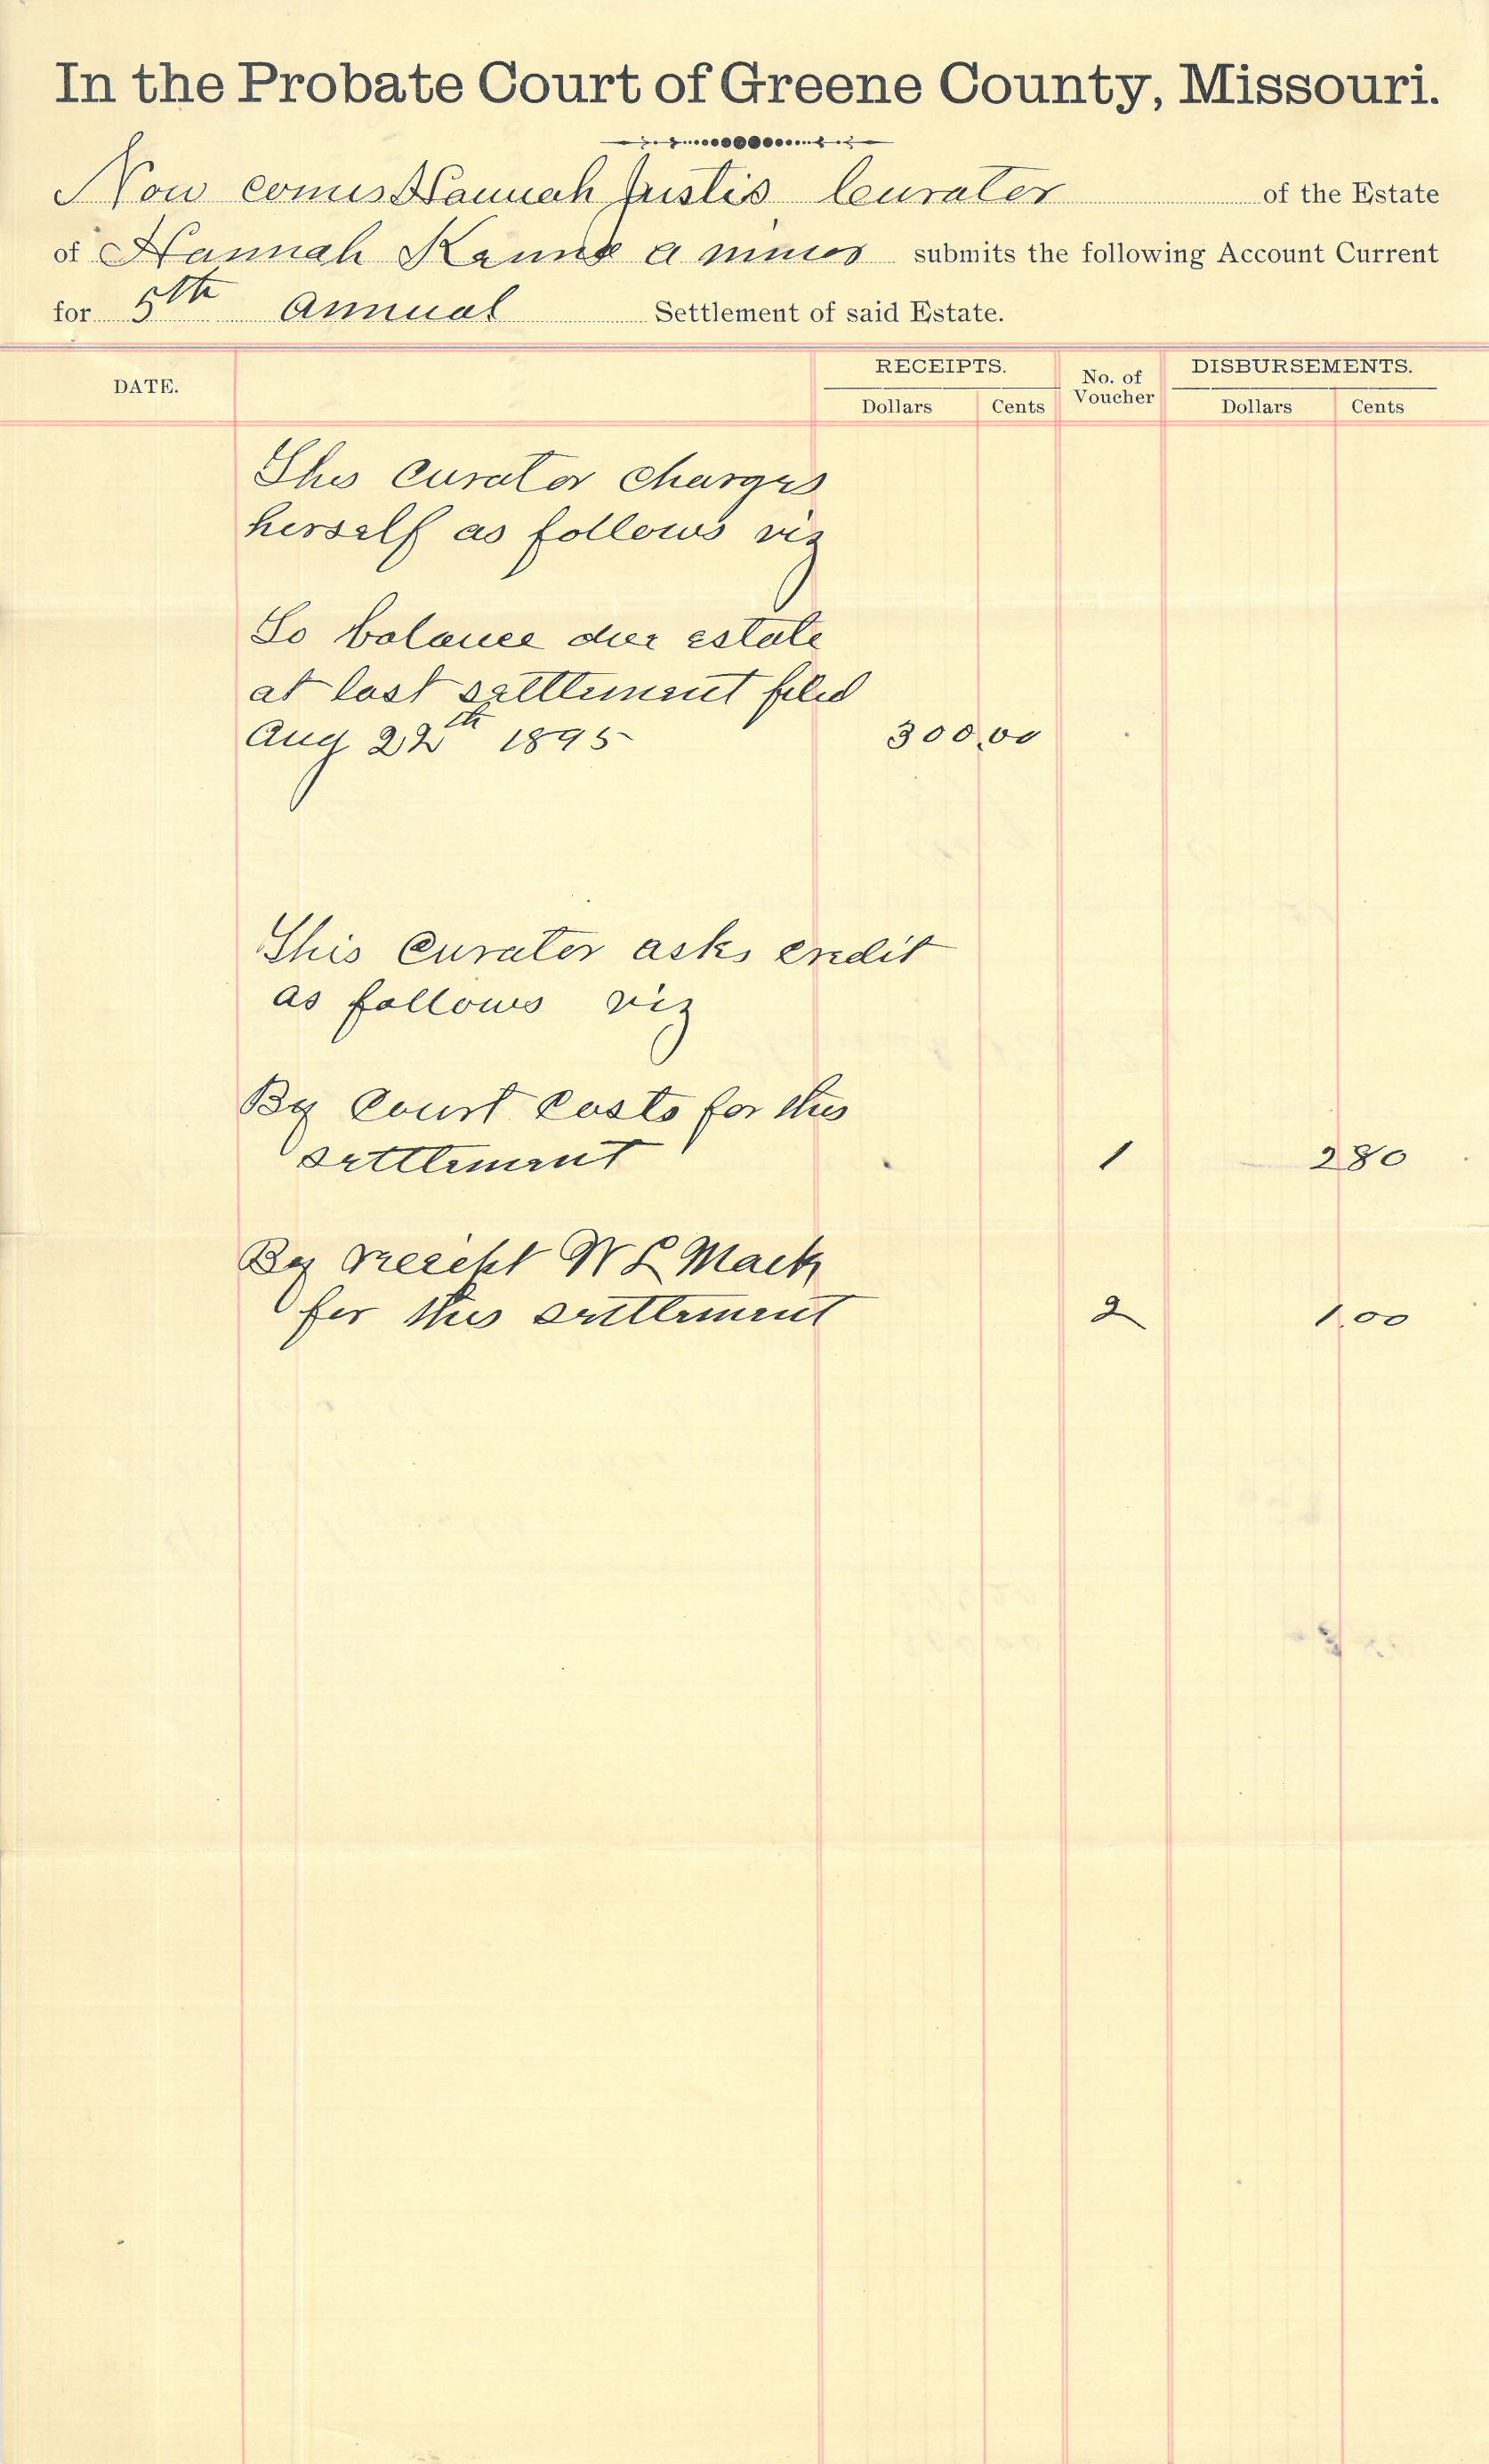 In the Probate Court of Greene County, Missouri.
Now comes Hannah Justis Curator of the Estate
of Hannah a minor submits the following Account Current
for 5th annual Settlement of said Estate.
DATE. RECEIPTS. No. of Voucher DISBURSEMENTS.
Dollars Cents Dollars Cents
This curator charges
herself as follows viz
To balance due estate
at last settlement filed
Aug 22th 1895 300.00
This Curator asks credit
as follows viz
By Court Costs for this
settlement 1 2 80
By receipt W L Mack
for this settlement 2 1.00